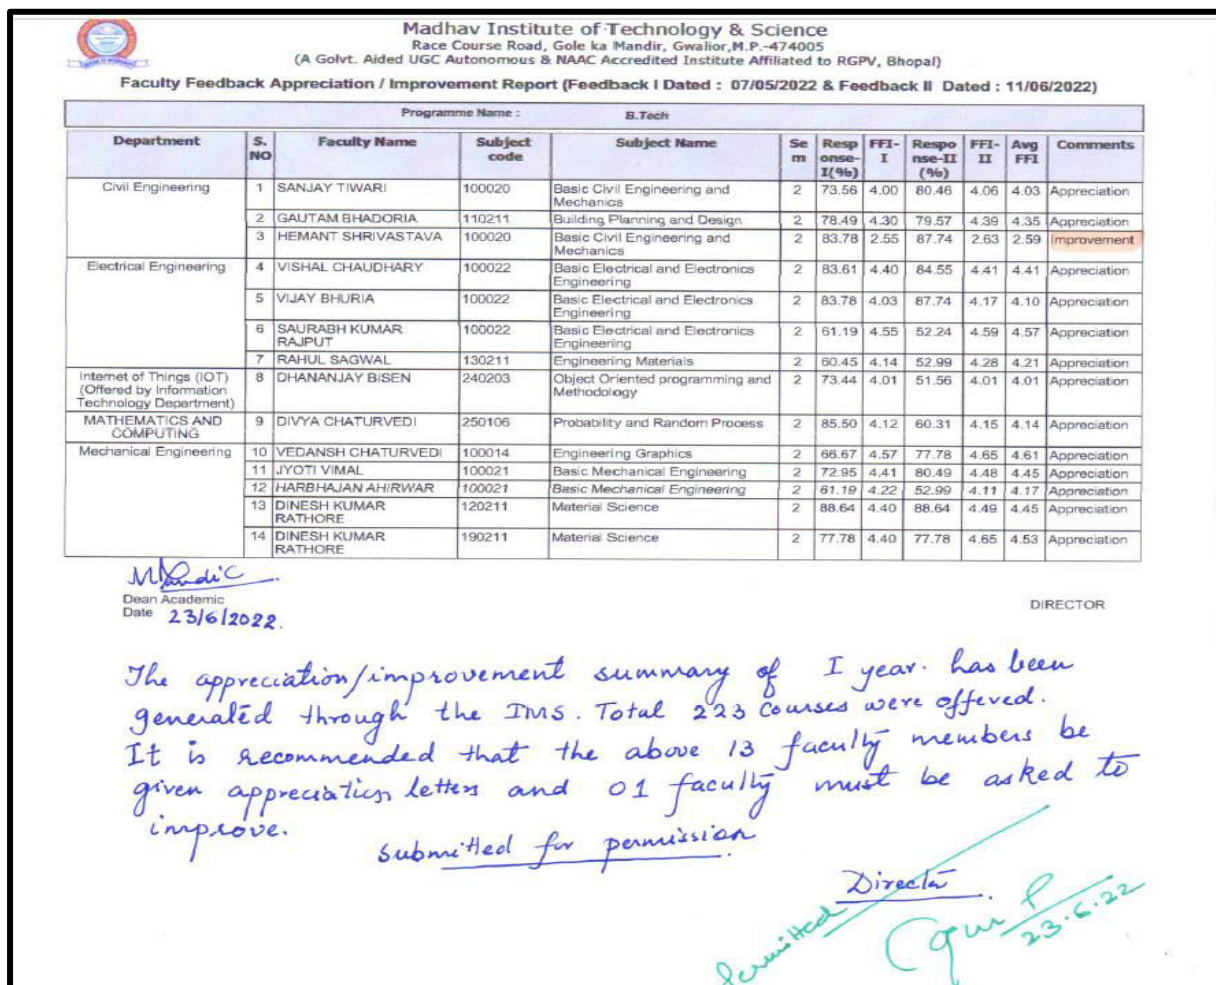 Madhav Institute of Technology & Science
Race Course Road, Gole ka Mandir, Gwalior,M.P.-474005
(A Golvt. Aided UGC Autonomous & NAAC Accredited Institute Affiliated to RGPV, Bhopal)
Faculty Feedback Appreciation / Improvement Report (Feedback I Dated : 07/05/2022 & Feedback II Dated : 11/06/2022)
Programme Name : B.Tech
Department S. NO Faculty Name Subject code Subject Name Se m Resp onse- I(%) FFI- I Respo nse-II (%) FFI- II Avg FFI Comments
Civil Engineering 1 SANJAY TIWARI 100020 Basic Civil Engineering and Mechanics 2 73.56 4.00 80.46 4.06 4.03 Appreciation
2 GAUTAM BHADORIA 110211 Building Planning and Design 2 78.49 4.30 79.57 4.39 4.35 Appreciation
3 HEMANT SHRIVASTAVA 100020 Basic Civil Engineering and Mechanics 2 83.78 2.55 87.74 2.63 2.59 Improvement
Electrical Engineering 4 VISHAL CHAUDHARY 100022 Basic Electrical and Electronics Engineering 2 83.61 4.40 84.55 4.41 4.41 Appreciation
5 VIJAY BHURIA 100022 Basic Electrical and Electronics Engineering 2 83.78 4.03 87.74 4.17 4.10 Appreciation
6 SAURABH KUMAR RAJPUT 100022 Basic Electrical and Electronics Engineering 2 61.19 4.55 52.24 4.59 4.57 Appreciation
7 RAHUL SAGWAL 130211 Engineering Materials 2 60.45 4.14 52.99 4.28 4.21 Appreciation
Internet of Things (IOT) (Offered by Information Technology Department) 8 DHANANJAY BISEN 240203 Object Oriented programming and Methodology 2 73.44 4.01 51.56 4.01 4.01 Appreciation
MATHEMATICS AND COMPUTING 9 DIVYA CHATURVEDI 250106 Probability and Random Process 2 85.50 4.12 60.31 4.15 4.14 Appreciation
Mechanical Engineering 10 VEDANSH CHATURVEDI 100014 Engineering Graphics 2 66.67 4.57 77.78 4.65 4.61 Appreciation
11 JYOTI VIMAL 100021 Basic Mechanical Engineering 2 72.95 4.41 80.49 4.48 4.45 Appreciation
12 HARBHAJAN AHIRWAR 100021 Basic Mechanical Engineering 2 61.19 4.22 52.99 4.11 4.17 Appreciation
13 DINESH KUMAR RATHORE 120211 Material Science 2 88.64 4.40 88.64 4.49 4.45 Appreciation
14 DINESH KUMAR RATHORE 190211 Material Science 2 77.78 4.40 77.78 4.65 4.53 Appreciation
Dean Academic
Date 23/6/2022.
DIRECTOR
The appreciation/improvement summary of I year. has been
generated through the IMS. Total 223 courses were offered.
It is recommended that the above 13 faculty members be
given appreciation letters and 01 faculty must be asked to
improve.
submitted for permission
Director
Permitted
23.6.22